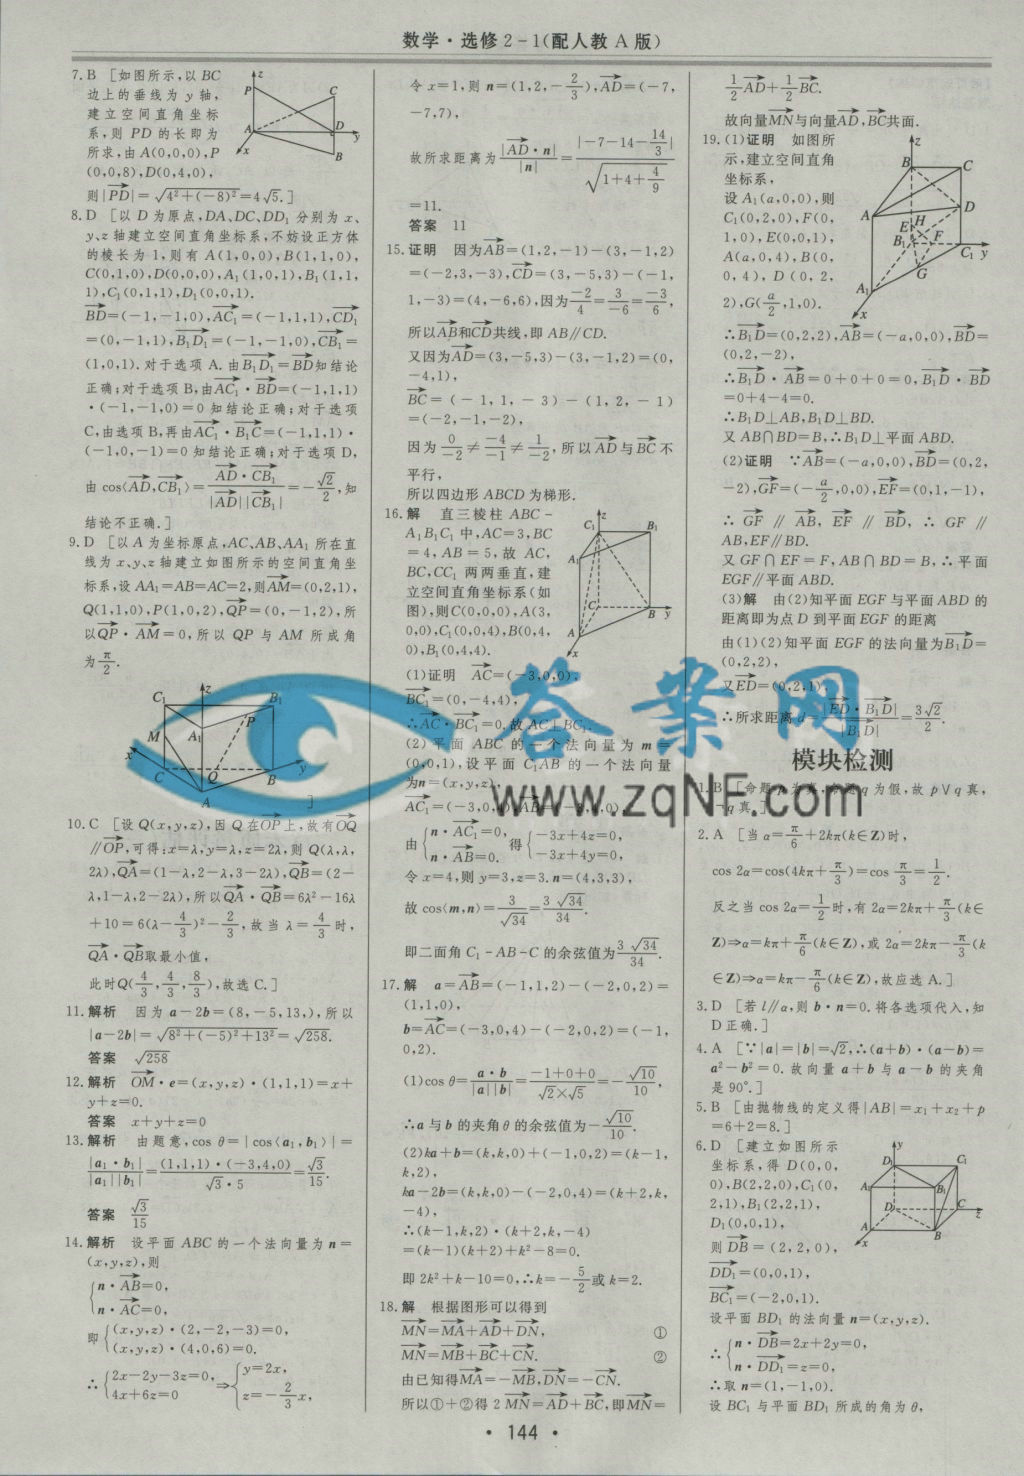 数学·选修2-1(配人教A版)
7.B [如图所示,以BC
边上的垂线为y轴,
建立空间直角坐标
系,则PD的长即为
所求,由A(0,0,0),P
(0,0,8),D(0,4,0),
则|PD|=√4²+(-8)²=4√5.]
8.D [以D为原点,DA、DC、DD₁分别为x、
y、z轴建立空间直角坐标系,不妨设正方体
的棱长为1,则有A(1,0,0),B(1,1,0),
C(0,1,0),D(0,0,0),A₁(1,0,1),B₁(1,1,
1),C₁(0,1,1),D₁(0,0,1).
BD=(-1,-1,0),AC₁=(-1,1,1),CD₁
=(0,-1,1),B₁D₁=(-1,-1,0),CB₁=
(1,0,1).对于选项A.由B₁D₁=BD知结论
正确;对于选项B,由AC₁·BD=(-1,1,1)
·(-1,-1,0)=0知结论正确;对于选项
C,由选项B,再由AC₁·B₁C=(-1,1,1)·
(-1,0,-1)=0知结论正确;对于选项D,
由cos⟨AD,CB₁⟩=AD·CB₁/|AD||CB₁|=-√2/2,知
结论不正确.]
9.D [以A为坐标原点,AC、AB、AA₁所在直
线为x、y、z轴建立如图所示的空间直角坐
标系,设AA₁=AB=AC=2,则AM=(0,2,1),
Q(1,1,0),P(1,0,2),QP=(0,-1,2),所
以QP·AM=0,所以QP与AM所成角
为π/2.
]
10.C [设Q(x,y,z),因Q在OP上,故有OQ
∥OP,可得:x=λ,y=λ,z=2λ,则Q(λ,λ,
2λ),QA=(1-λ,2-λ,3-2λ),QB=(2-
λ,1-λ,2-2λ),所以QA·QB=6λ²-16λ
+10=6(λ-4/3)²-2/3,故当λ=4/3时,
QA·QB取最小值,
此时Q(4/3,4/3,8/3),故选C.]
11.解析 因为a-2b=(8,-5,13,),所以
|a-2b|=√8²+(-5)²+13²=√258.
答案 √258
12.解析 OM·e=(x,y,z)·(1,1,1)=x+
y+z=0.
答案 x+y+z=0
13.解析 由题意,cos θ=|cos⟨a₁,b₁⟩|=
|a₁·b₁|/|a₁||b₁|=(1,1,1)·(-3,4,0)/√3·5=√3/15.
答案 √3/15
14.解析 设平面ABC的一个法向量为n=
(x,y,z),则
{n·AB=0,
n·AC=0,
即{(x,y,z)·(2,-2,-3)=0,
(x,y,z)·(4,0,6)=0.
∴{2x-2y-3z=0,
4x+6z=0
⇒{y=2x,
z=-2/3x,
令x=1,则n=(1,2,-2/3),AD=(-7,
-7,7),
故所求距离为|AD·n|/|n|=|-7-14-14/3|/√1+4+4/9
=11.
答案 11
15.证明 因为AB=(1,2,-1)-(3,-1,2)
=(-2,3,-3),CD=(3,-5,3)-(-1,
1,-3)=(4,-6,6),因为-2/4=3/-6=-3/6,
所以AB和CD共线,即AB∥CD.
又因为AD=(3,-5,3)-(3,-1,2)=(0,
-4,1),
BC=(-1,1,-3)-(1,2,-1)
=(-2,-1,-2),
因为0/-2≠-4/-1≠1/-2,所以AD与BC不
平行,
所以四边形ABCD为梯形.
16.解 直三棱柱ABC-
A₁B₁C₁中,AC=3,BC
=4,AB=5,故AC,
BC,CC₁两两垂直,建
立空间直角坐标系(如
图),则C(0,0,0),A(3,
0,0),C₁(0,0,4),B(0,4,
0),B₁(0,4,4).
(1)证明 AC=(-3,0,0),
BC₁=(0,-4,4),
∴AC·BC₁=0.故AC⊥BC₁.
(2)平面ABC的一个法向量为m=
(0,0,1),设平面C₁AB的一个法向量
为n=(x,y,z),
AC₁=(-3,0,4),AB=(-3,4,0),
由{n·AC₁=0,
n·AB=0.
得{-3x+4z=0,
-3x+4y=0,
令x=4,则y=3,z=3.n=(4,3,3),
故cos⟨m,n⟩=3/√34=3√34/34.
即二面角C₁-AB-C的余弦值为3√34/34.
17.解 a=AB=(-1,1,2)-(-2,0,2)=
(1,1,0),
b=AC=(-3,0,4)-(-2,0,2)=(-1,
0,2).
(1)cos θ=a·b/|a||b|=-1+0+0/√2×√5=-√10/10,
∴a与b的夹角θ的余弦值为-√10/10.
(2)ka+b=(k,k,0)+(-1,0,2)=(k-1,
k,2),
ka-2b=(k,k,0)-(-2,0,4)=(k+2,k,
-4),
∴(k-1,k,2)·(k+2,k,-4)
=(k-1)(k+2)+k²-8=0.
即2k²+k-10=0,∴k=-5/2或k=2.
18.解 根据图形可以得到
MN=MA+AD+DN, ①
MN=MB+BC+CN. ②
由已知得MA=-MB,DN=-CN.
所以①+②得2MN=AD+BC,即MN=
1/2AD+1/2BC.
故向量MN与向量AD,BC共面.
19.(1)证明 如图所
示,建立空间直角
坐标系,
设A₁(a,0,0),则
C₁(0,2,0),F(0,
1,0),E(0,0,1),
A(a,0,4),B(0,
0,4),D(0,2,
2),G(a/2,1,0).
∴B₁D=(0,2,2),AB=(-a,0,0),BD=
(0,2,-2),
∴B₁D·AB=0+0+0=0,B₁D·BD
=0+4-4=0.
∴B₁D⊥AB,B₁D⊥BD.
又AB∩BD=B,∴B₁D⊥平面ABD.
(2)证明 ∵AB=(-a,0,0),BD=(0,2,
-2),GF=(-a/2,0,0),EF=(0,1,-1),
∴GF∥AB,EF∥BD,∴GF∥
AB,EF∥BD.
又GF∩EF=F,AB∩BD=B,∴平面
EGF∥平面ABD.
(3)解 由(2)知平面EGF与平面ABD的
距离即为点D到平面EGF的距离
由(1)(2)知平面EGF的法向量为B₁D=
(0,2,2),
又ED=(0,2,1),
∴所求距离d=|ED·B₁D|/|B₁D|=3√2/2.
模块检测
1.B [命题p为真,命题q为假,故p∨q真,
¬q真.]
2.A [当α=π/6+2kπ(k∈Z)时,
cos 2α=cos(4kπ+π/3)=cos π/3=1/2.
反之当cos 2α=1/2时,有2α=2kπ+π/3(k∈
Z)⇒α=kπ+π/6(k∈Z),或2α=2kπ-π/3(k
∈Z)⇒α=kπ-π/6(k∈Z),故应选A.]
3.D [若l∥α,则b·n=0.将各选项代入,知
D正确.]
4.A [∵|a|=|b|=√2,∴(a+b)·(a-b)=
a²-b²=0.故向量a+b与a-b的夹角
是90°.]
5.B [由抛物线的定义得|AB|=x₁+x₂+p
=6+2=8.]
6.D [建立如图所示
坐标系,得D(0,0,
0),B(2,2,0),C₁(0,
2,1),B₁(2,2,1),
D₁(0,0,1),
则DB=(2,2,0),
DD₁=(0,0,1),
BC₁=(-2,0,1).
设平面BD₁的法向量n=(x,y,z).
∴{n·DB=2x+2y=0,
n·DD₁=z=0,
∴取n=(1,-1,0).
设BC₁与平面BD₁所成的角为θ,
答案网
www.zqNF.com
·144·